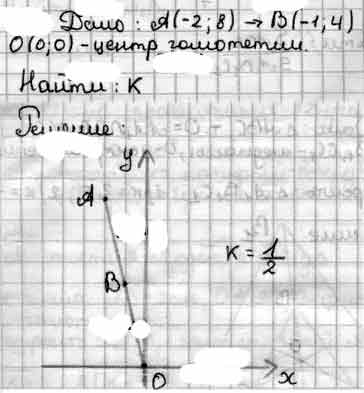 Дано: A(-2; 8) → B(-1; 4)
O(0; 0) - центр гомотетии.
Найти: K
Решение:
y
A
K = 1/2
B
O
x